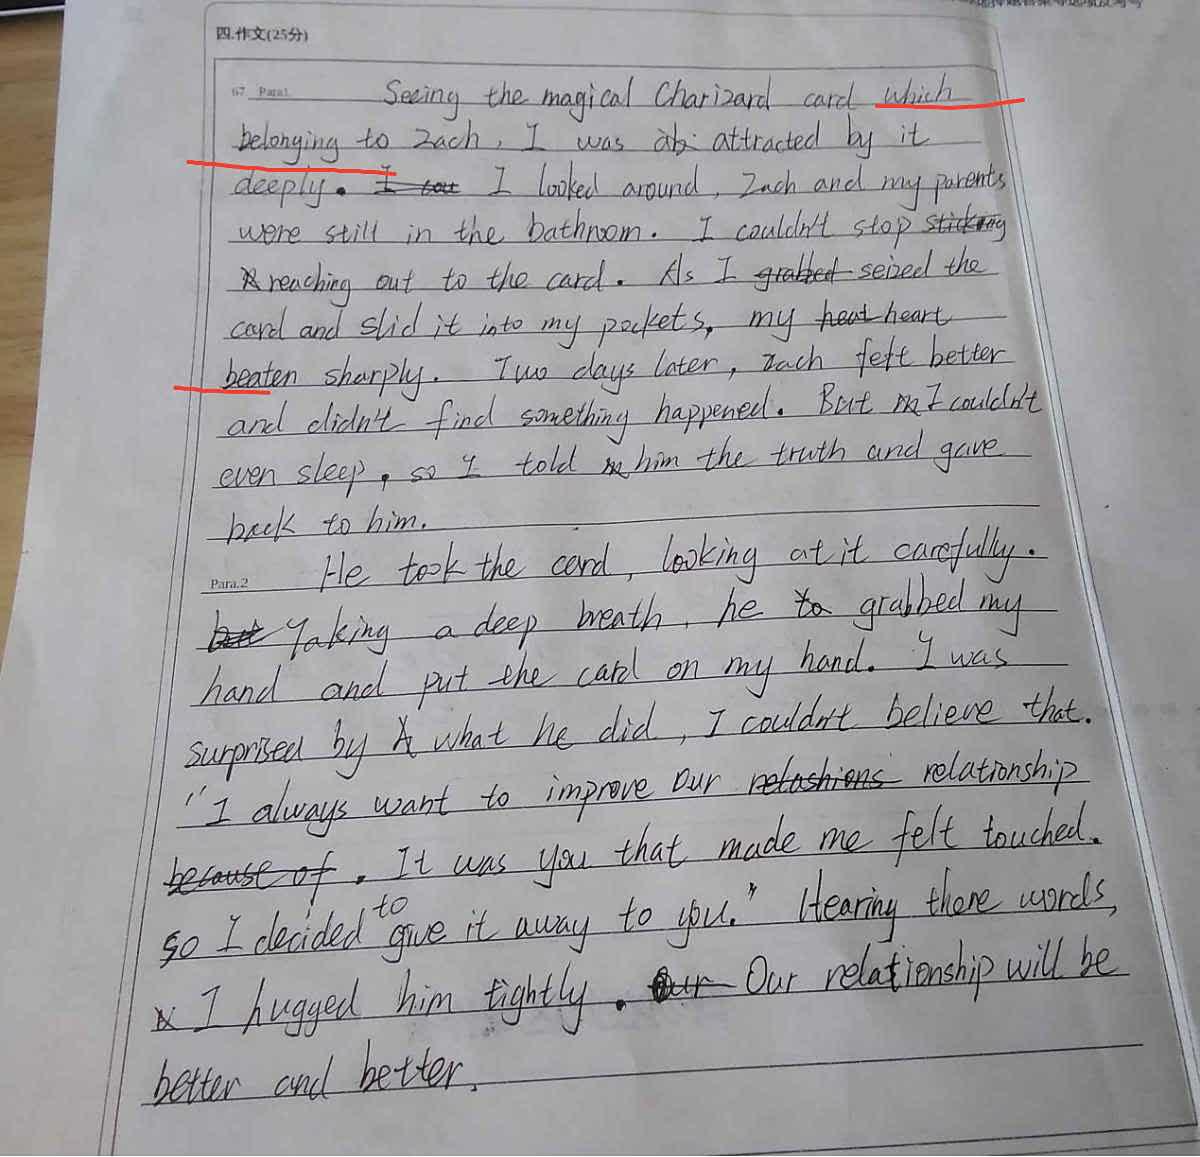 四.作文(25分)
67. Para1. Seeing the magical Charizard card which
belonging to Zach, I was ab attracted by it
deeply. I cou I looked around, Zach and my parents
were still in the bathroom. I couldn't stop sticking
reaching out to the card. As I grabbed seized the
card and slid it into my pockets, my heat heart
beaten sharply. Two days later, Zach felt better
and didn't find something happened. But m I couldn't
even sleep, so I told m him the truth and gave
back to him.
Para.2 He took the card, looking at it carefully.
but Taking a deep breath, he to grabbed my
hand and put the card on my hand. I was
surprised by what he did, I couldn't believe that.
"I always want to improve our relashions relationship
because of. It was you that made me felt touched.
so I decided to give it away to you." Hearing there words,
I hugged him tightly. Our Our relationship will be
better and better.